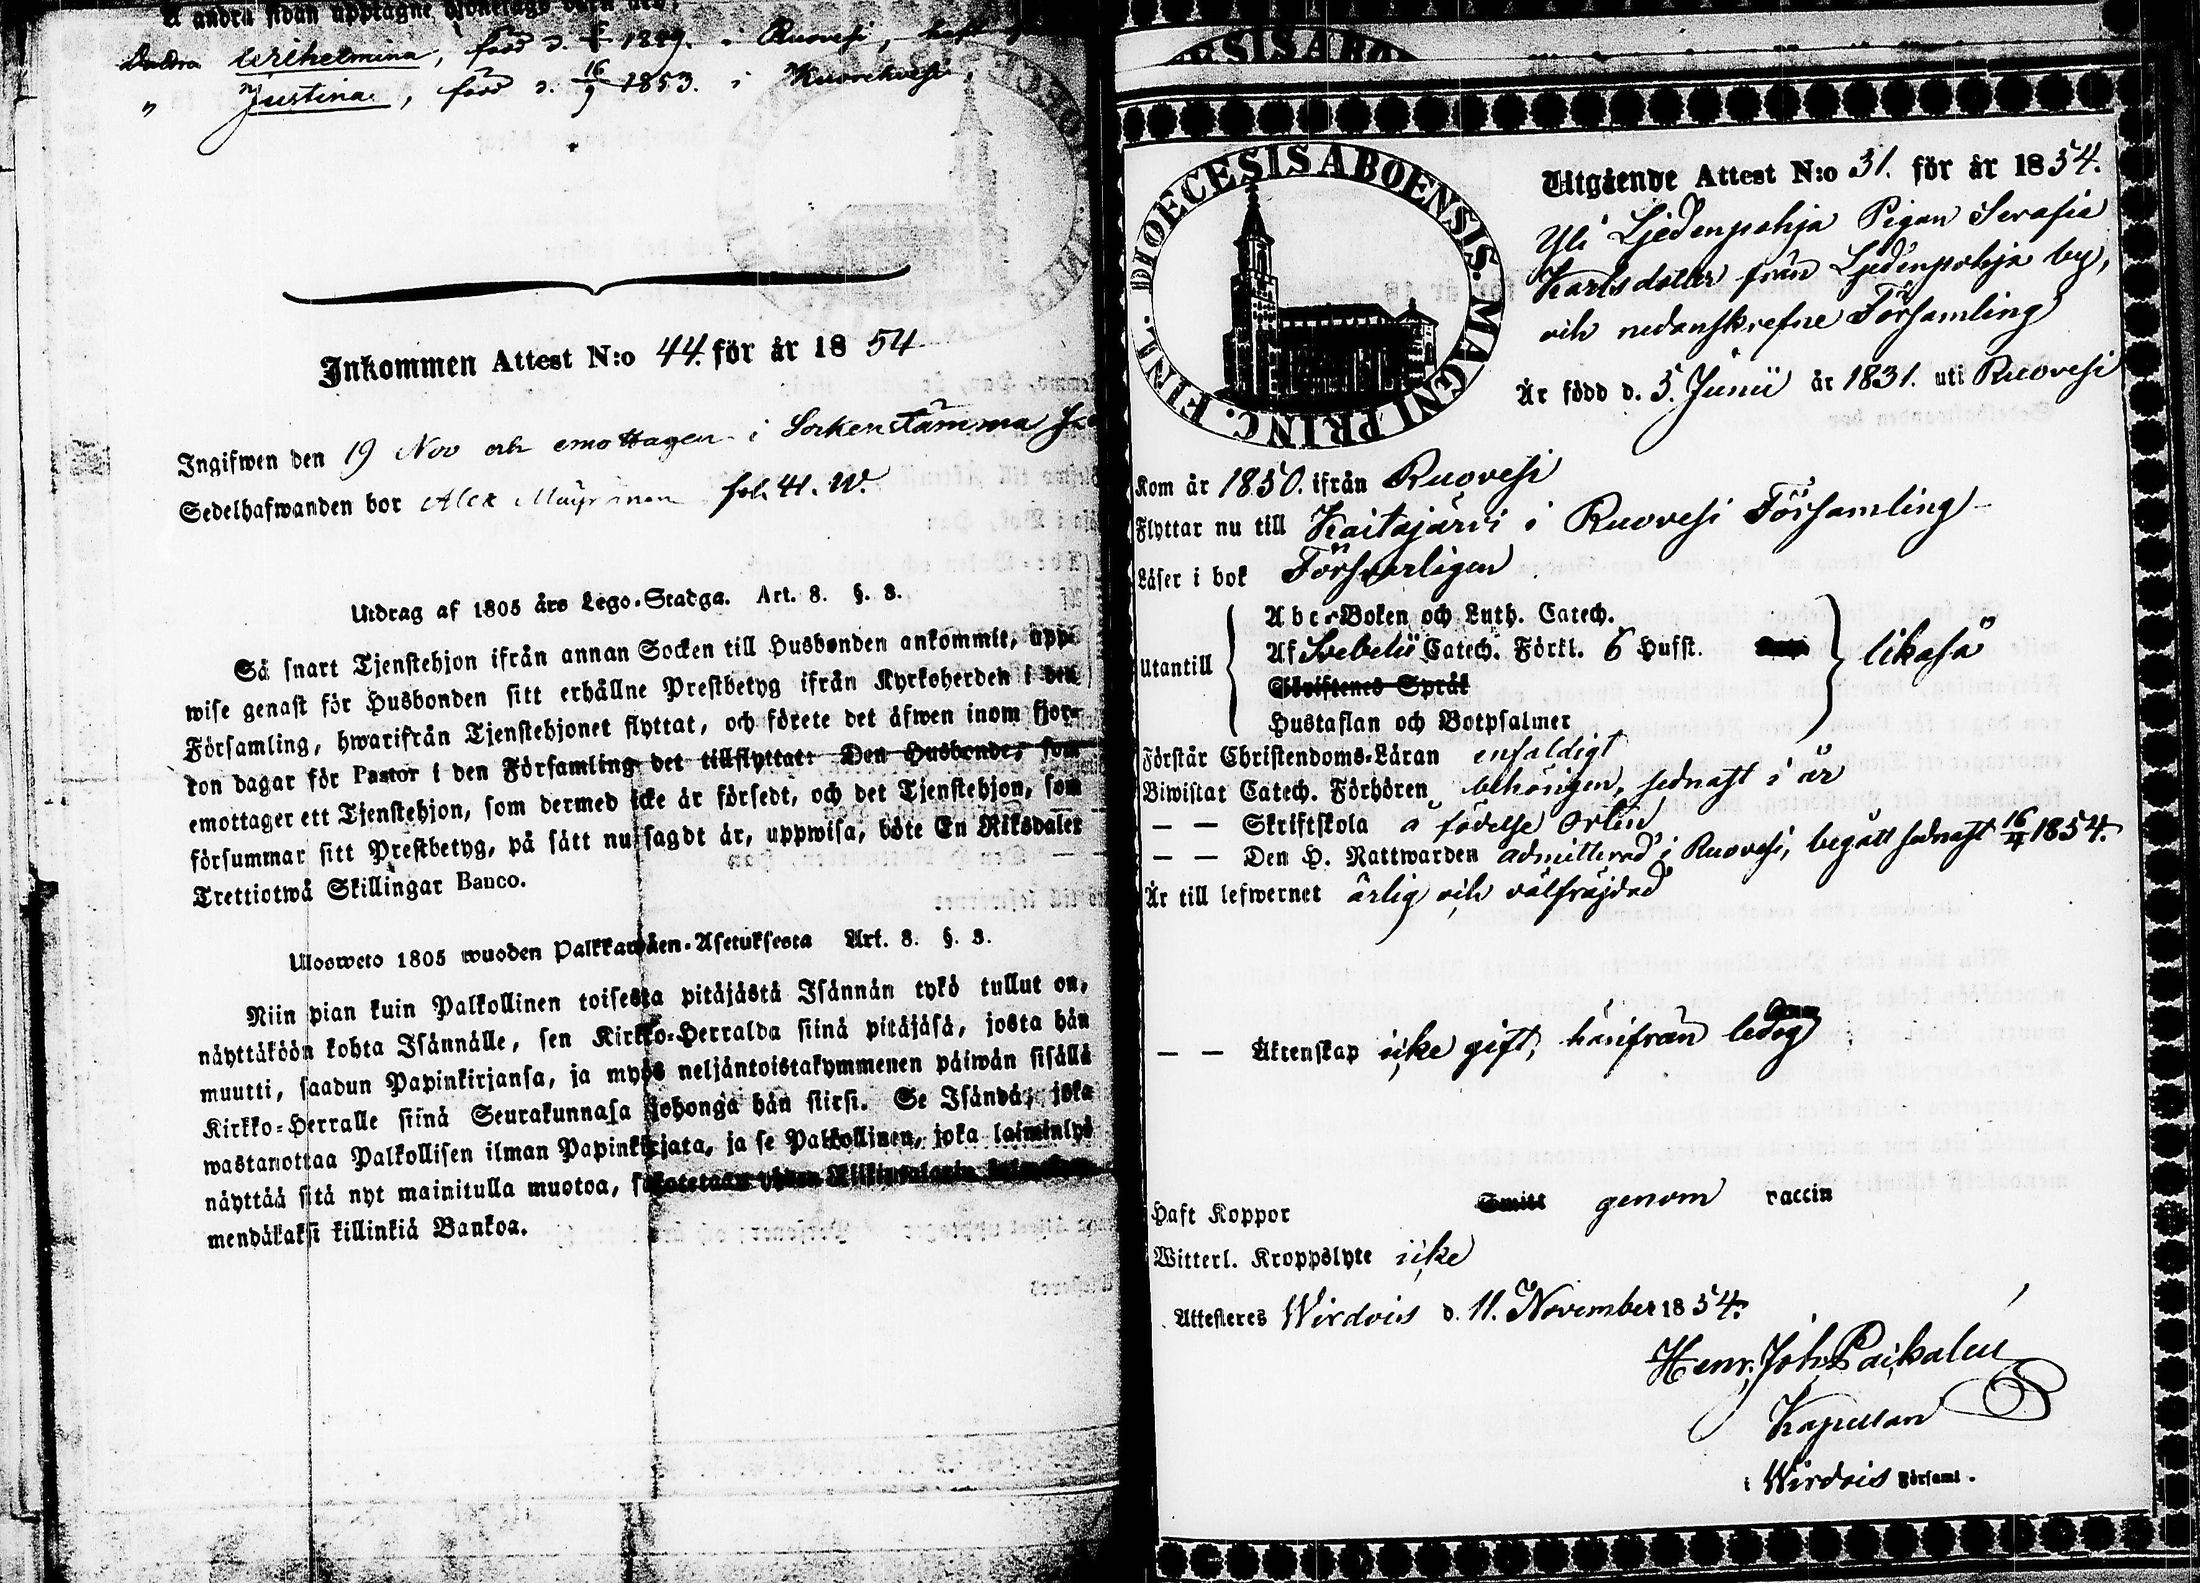 Å andra sidan upptagne
Dottra Wilhelmina, född d. 1849. i Ruovesi, haft
" Justina, född d. 16/9 1853. i Kuorehvesi.
Inkommen Attest N:o 44. för år 1854
Ingifwen den 19 Nov och emottagen i Sockenstämma
Sedelhafwanden bor Alex fol. 41. W.
Utdrag af 1805 års Lego-Stadga. Art. 8. §. 3.
Så snart Tjenstehjon ifrån annan Socken till Husbonden ankommit, upp-
wise genast för Husbonden sitt erhållne Prestbetyg ifrån Kyrkoherden i den
Församling, hwarifrån Tjenstehjonet flyttat, och förete det äfwen inom fjor-
ton dagar för Pastor i den Församling det tillflyttat: Den Husbonde, som
emottager ett Tjenstehjon, som dermed icke är försedt, och det Tjenstehjon, som
försummar sitt Prestbetyg, på sätt nu sagdt är, uppwisa, böte En Riksdaler
Trettiotwå Skillingar Banco.
Ulosweto 1805 wuoden Palkkawäen-Asetuksesta Art. 8. §. 3.
Niin pian kuin Palkollinen toisesta pitäjästä Isännän tykö tullut on,
näyttäköön kohta Isännälle, sen Kirkko-Herralda siinä pitäjäsä, josta hän
muutti, saadun Papinkirjansa, ja myös neljäntoistakymmenen päiwän sisällä
Kirkko-Herralle siinä Seurakunnasa johonga hän siirsi. Se Isändä, joka
wastanottaa Palkollisen ilman Papinkirjata, ja se Palkollinen, joka laiminlyö
näyttää sitä nyt mainitulla muotoa, sakotetaan yhden Riikintalarin
mendäkaksi killinkiä Bankoa.
DIOECESIS ABOENSIS. MAGNI PRINC. FINL.
Utgående Attest N:o 31. för år 1854.
Yli Ljedenpohja Pigan Serafia
Karlsdotter från Ljedenpohja by,
och nedanskrefne Församling
Är född d. 5. Junii år 1831. uti Ruovesi
Kom år 1850. ifrån Ruovesi
Flyttar nu till Kaitajärvi i Ruovesi Församling
Läser i bok Försvarligen
Utantill
Abc-Boken och Luth. Catech.
Af Svebelii Catech. Förkl. 6 Hufst.
Skriftenes Språk
Hustaflan och Botpsalmer
likaså
Förstår Christendoms-Läran enfaldigt
Biwistat Catech. Förhören behörigen, sednast i år
— — Skriftskola å födelse orten
— — Den H. Nattwarden admitterad i Ruovesi, begått sednast 16/4 1854.
Är till lefwernet ärlig och välfräjdad
— — Äktenskap icke gift, härifrån ledig
Haft Koppor genom vaccin
Witterl. Kroppslyte icke
Attesteres Wirdois d. 11. November 1854.
Henr. Joh. Paikalén
Kapellan
i Wirdois Församl.